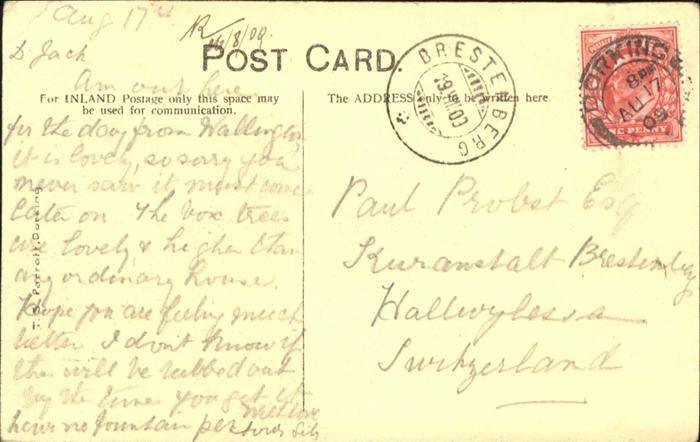 Aug 17th
R 24/8/09.
POST CARD.
D Jack
Am out here
For INLAND Postage only this space may
be used for communication.
The ADDRESS only to be written here.
for the day from Wallington
it is lovely, so sorry you
never saw it must come
later on The box trees
are lovely & higher than
any ordinary house.
Hope you are feeling much
better I don't know if
this will be rubbed out
by the time you get it
have no fountain pen
with love
yours
T. Parrott, Dorking
BRESTENBERG
DORKING
8 PM
AU 17
09
ONE PENNY
Paul Probst Esq
Kuranstalt Brestenberg
Hallwylersee
Switzerland